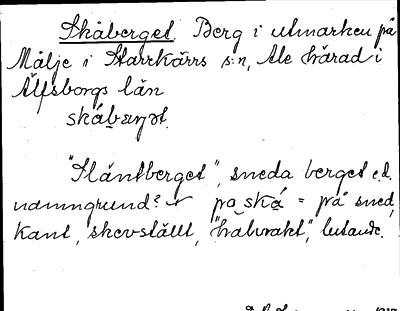 Skåberget. Berg i utmarken på
Målje i Starrkärrs s:n, Ale härad i
Älfsborgs län
skábærjət.
"Släntberget", sneda berget e.d.
namngrund? på ská = på sned,
kant, skevställt, "halvrakt", lutande.